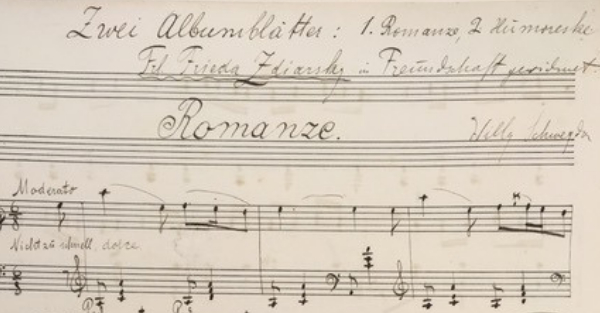 Zwei Albumblätter: 1. Romanze, 2. Humoreske
Frl. Frieda Zdiarsky in Freundschaft gewidmet.
Romanze.
Willy Schwegda
Moderato
Nicht zu schnell. dolce.